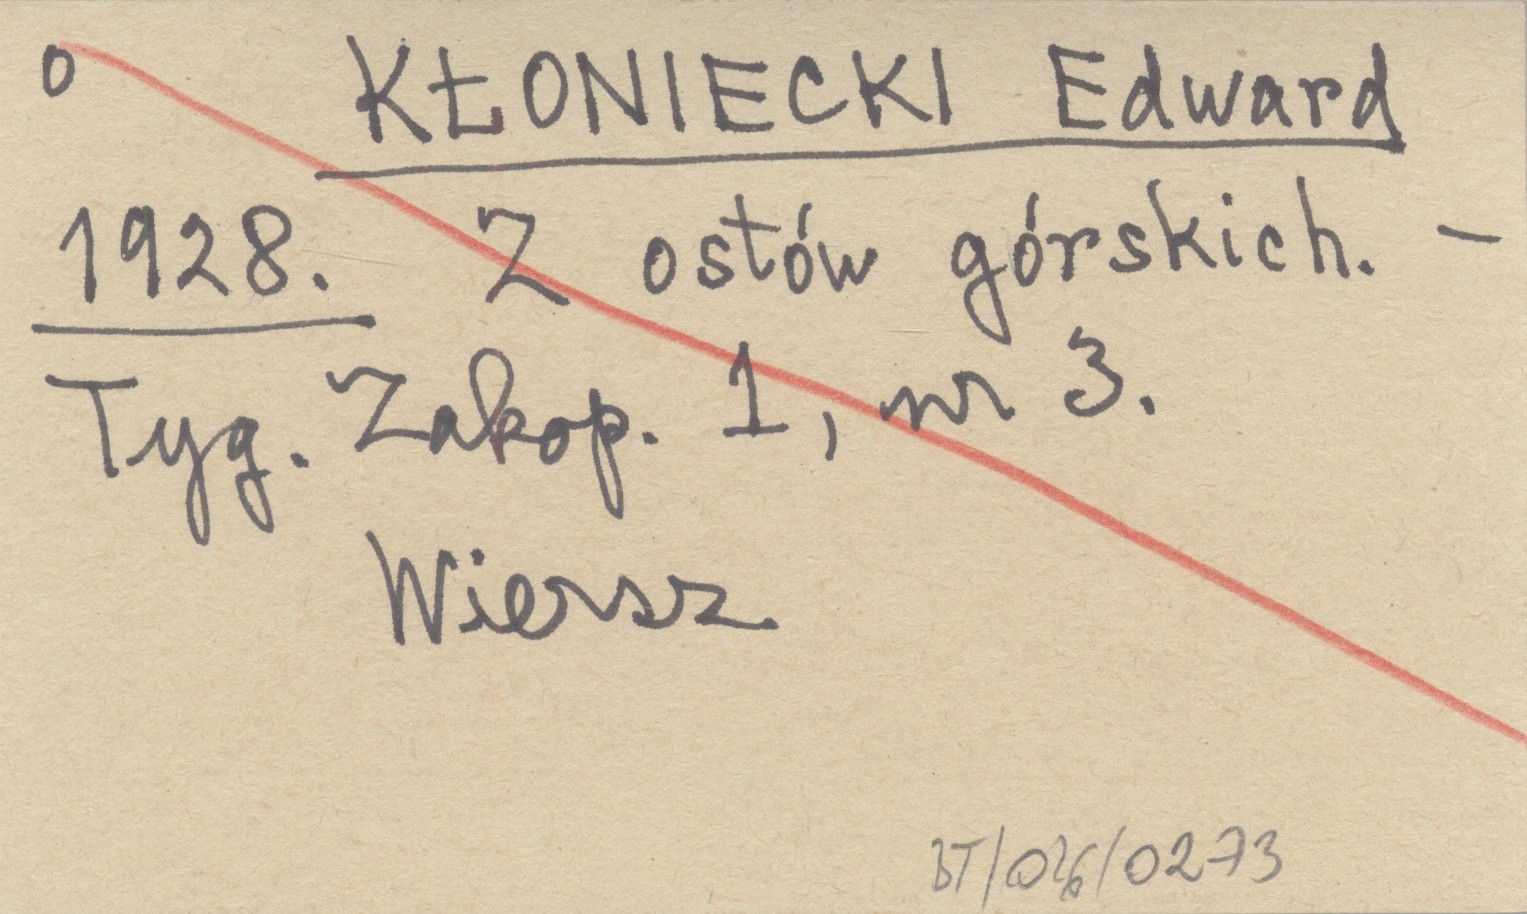 o KŁONIECKI Edward
1928. Z ostów górskich. –
Tyg. Zakop. 1, nr 3.
Wiersz.
0273